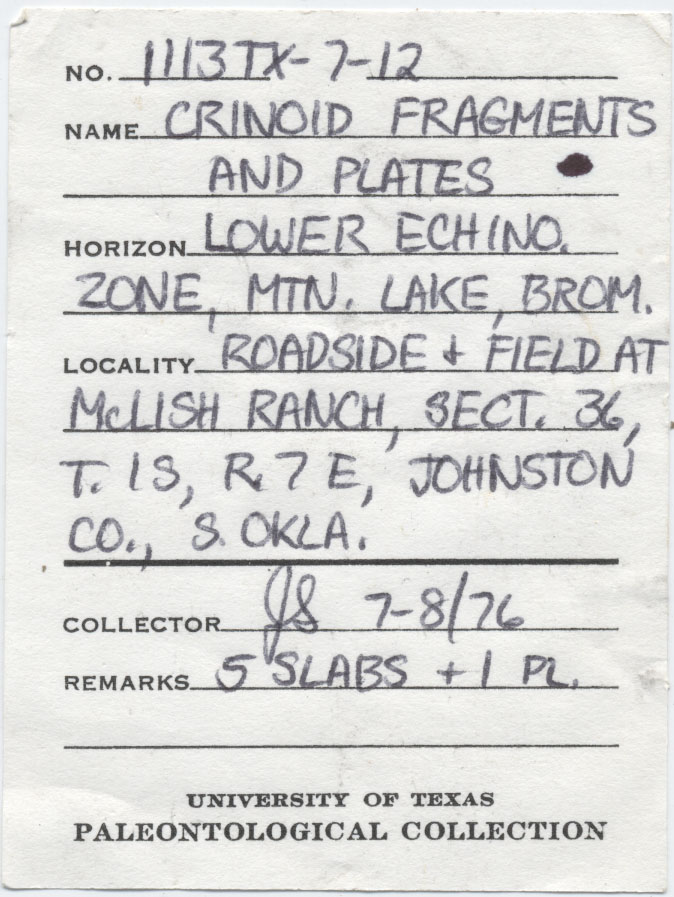 NO. 1113TX-7-12
NAME CRINOID FRAGMENTS
AND PLATES
HORIZON LOWER ECHINO.
ZONE, MTN. LAKE, BROM.
LOCALITY ROADSIDE + FIELD AT
McLISH RANCH, SECT. 36,
T. 1 S, R. 7 E, JOHNSTON
CO., S. OKLA.
COLLECTOR JS 7-8/76
REMARKS 5 SLABS + 1 PL.
UNIVERSITY OF TEXAS
PALEONTOLOGICAL COLLECTION